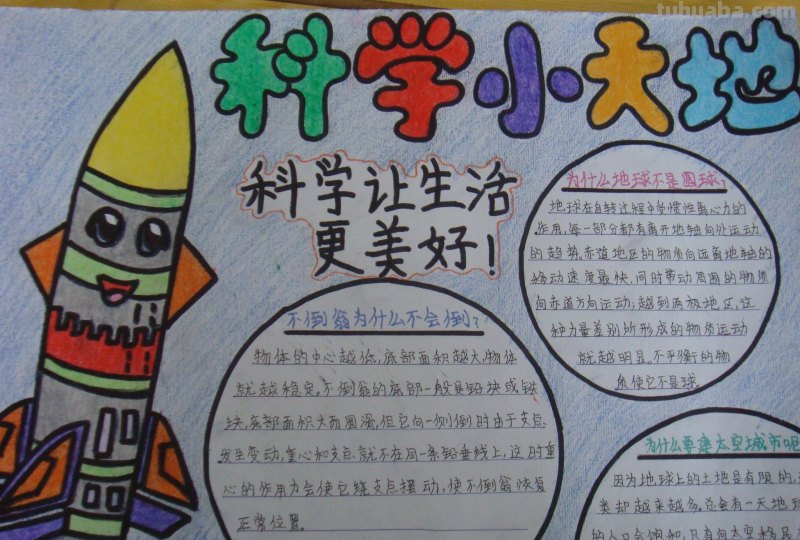 tuhuaba.com
科学小天地
科学让生活
更美好!
为什么地球不是圆球?
地球在自转过程中受惯性离心力的
作用,每一部分都有离开地轴向外运动
的趋势,赤道地区的物质向远离地轴的
移动速度最快,同时带动周围的物质
向赤道方向运动;越到两极地区,这
种力量差别所形成的物质运动
就越明显,不平衡的物
质使它不是球.
不倒翁为什么不会倒?
物体的中心越低,底部面积越大,物体
就越稳定,不倒翁的底部一般是铅块或铁
块,底部面积大而圆滑,但它向一侧倒时由于支点
发生变动,重心和支点就不在同一条铅垂线上,这时重
心的作用力会使它绕支点摆动,使不倒翁恢复
正常位置.
为什么要建太空城市呢
因为地球上的土地是有限的,
类却越来越多,总会有一天地球
的人口会饱和,只有向太空移民